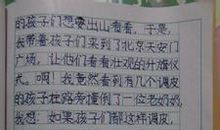 的孩子们想要出山看看，于是，
我带着孩子们来到了北京天安门
广场，让他们看看壮观的升旗仪
式。啊！我竟然看到有几个调皮
的孩子在路旁撞倒了一位老奶奶，
我想：如果孩子们都这样调皮